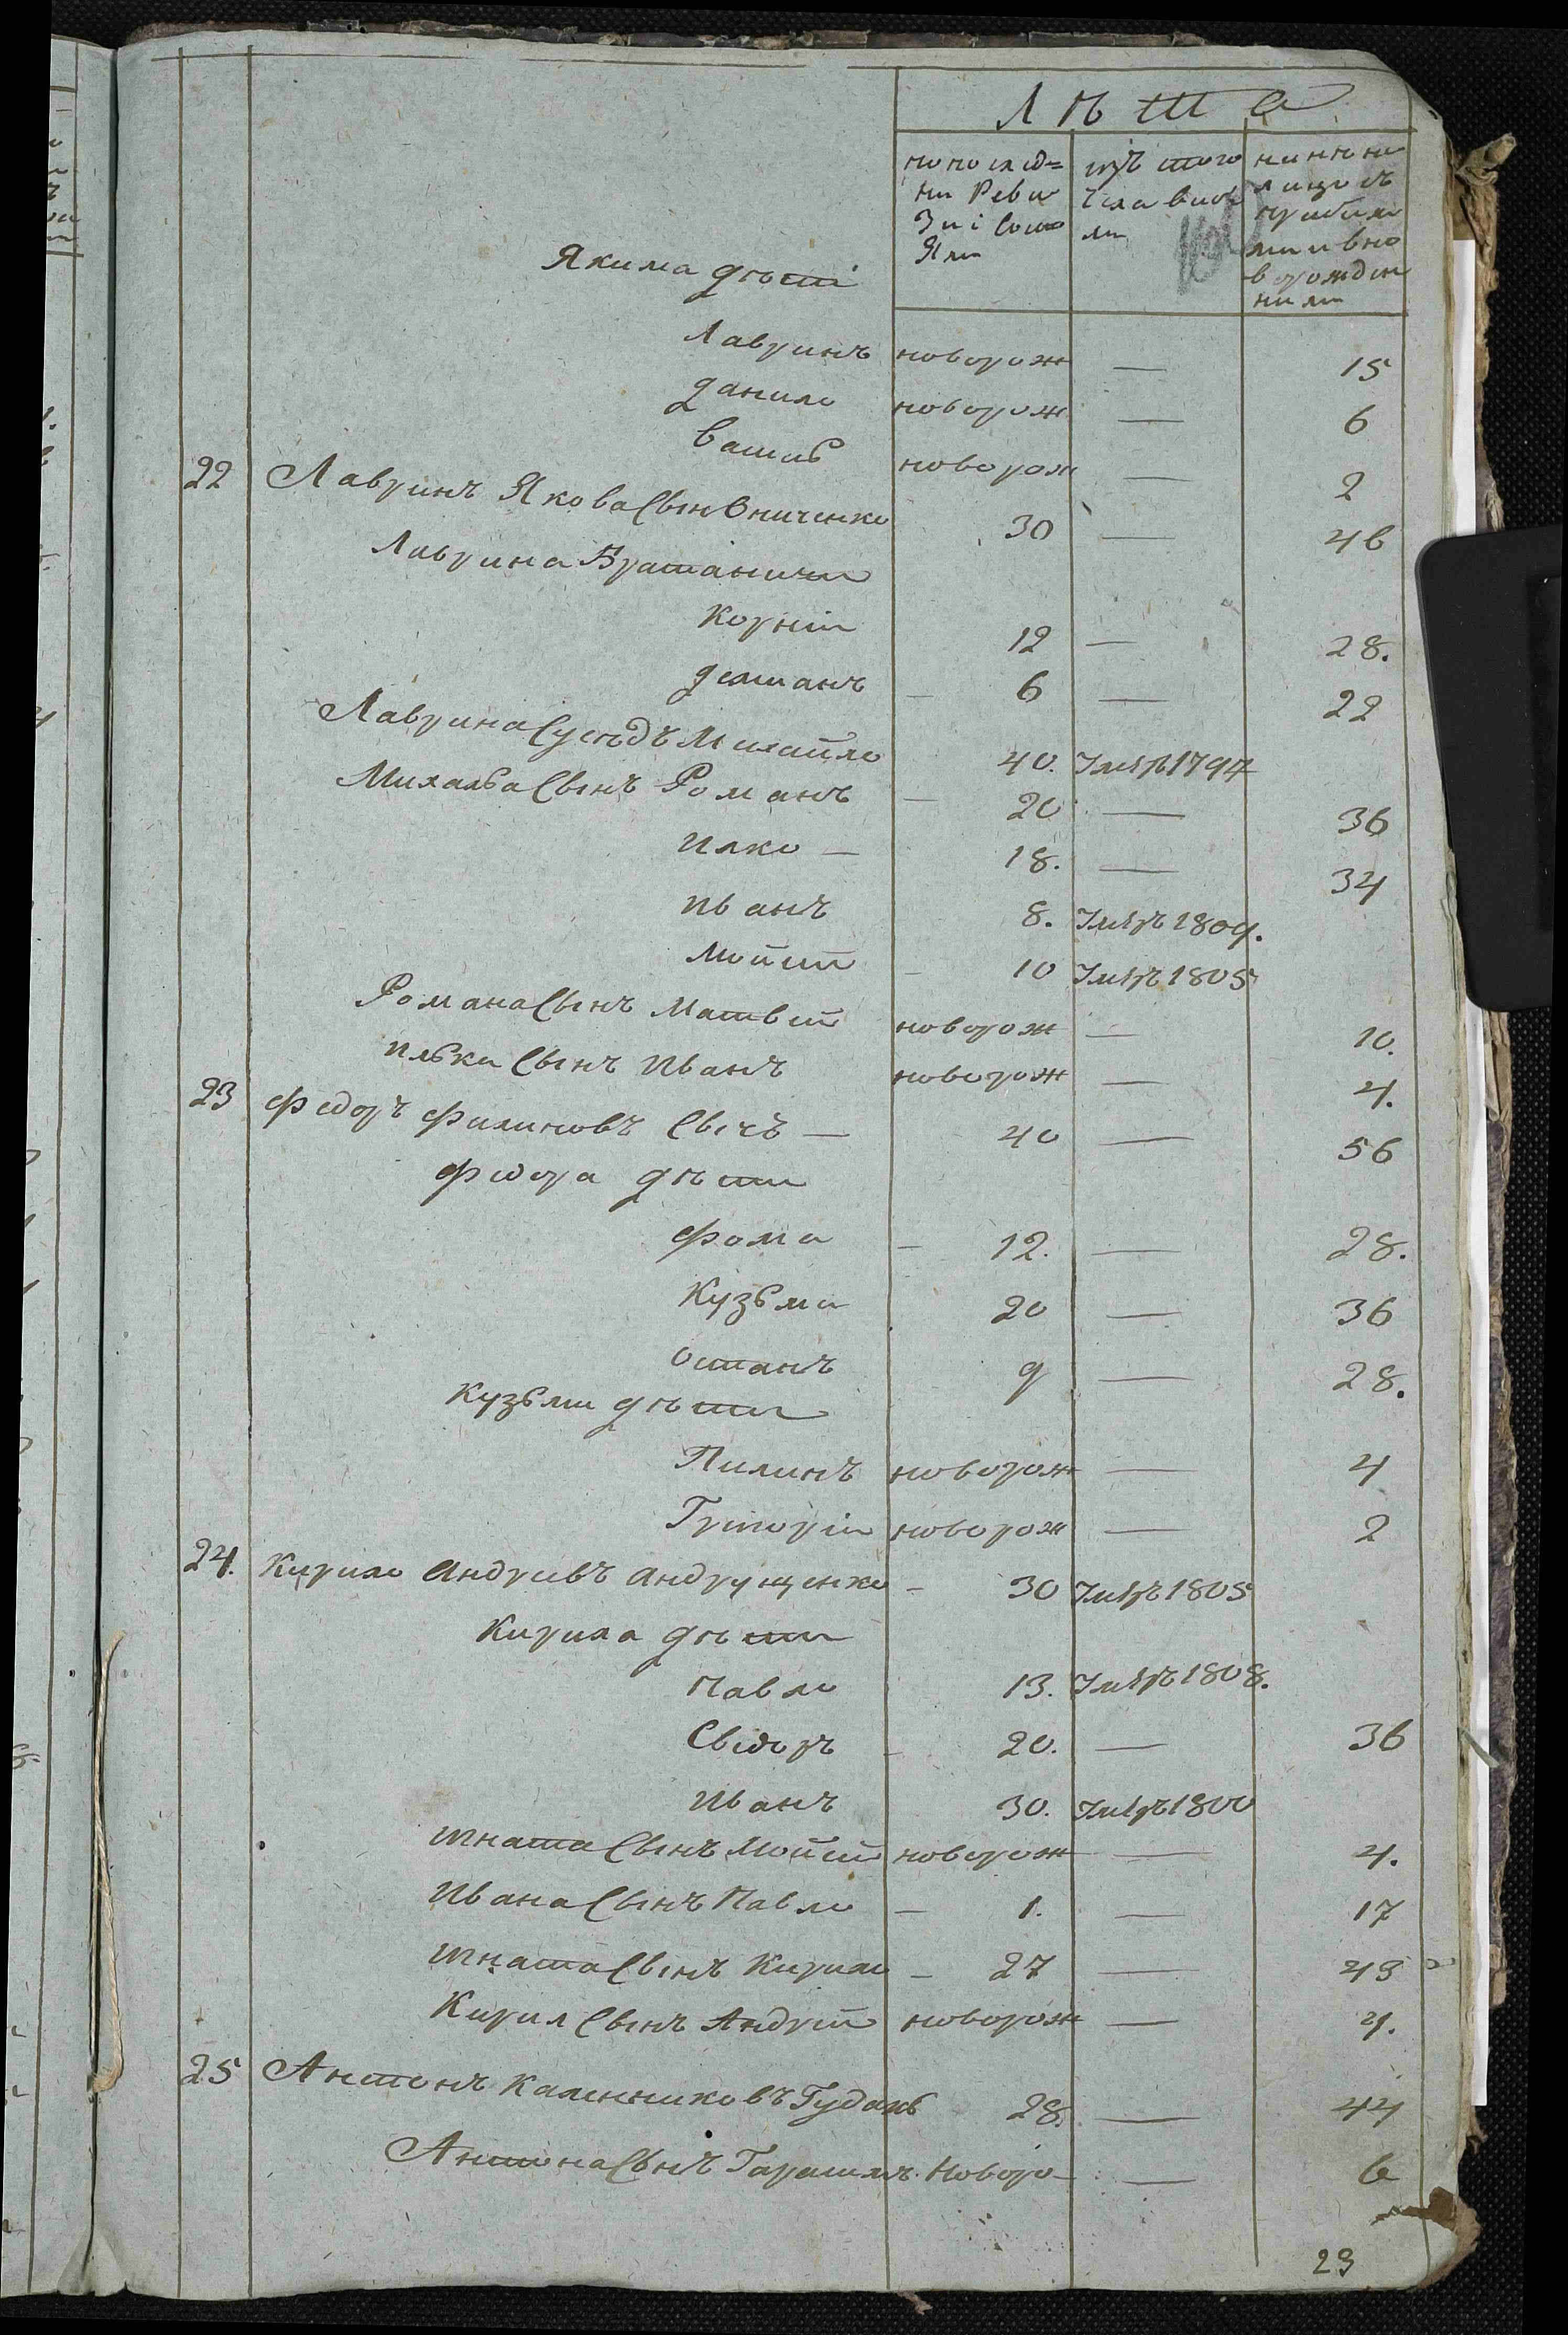 Лѣта
по послѣд=
ни Реви
зиі сост
яли
изъ того
числа выб
ли
нынѣ на
лицо съ
прибылы
ми и вно
в рожден
ними
Якима дѣти
Лавринъ новорож — 15
Данило новорож — 6
Василь новорож — 2
22 Лавринъ Якова Сынъ Ониченко 30 — 46
Лаврина Братаничи
Корній 12 — 28.
Демянъ — 6 — 22
Лаврина Сусѣдъ Михайло 40. Умеръ 1797
Михайла Сынъ Романъ — 20 — 36
Илко — 18. — 34
Иванъ 8. Умеръ 1809.
Мойсей — 10 Умеръ 1805
Романа Сынъ Матвей новорож — 10.
Илька Сынъ Иванъ новорож — 4.
23 Федоръ Филиповъ Сычъ — 40 — 56
Федора дѣти
Фома — 12. — 28.
Кузьма 20 — 36
Остапъ 9 — 28.
Кузьми дѣти
Пилипъ новорож — 4
Григорій новорож — 2
24. Кирило Андреевъ Андрущенко — 30 Умеръ 1805
Кирила дѣти
Павло 13. Умеръ 1808.
Свідоръ — 20. — 36
Иванъ 30. Умеръ 1800
Игната Сынъ Мойсей новорож — 4.
Ивана Сынъ Павло — 1. — 17
Игната Сынъ Кирило — 27 — 43
Кирил Сынъ Андрей новорож — 4.
25 Антонъ Калениковъ Гудзь 28. — 44
Антона Сынъ Гарасимъ Новоро — 6
23